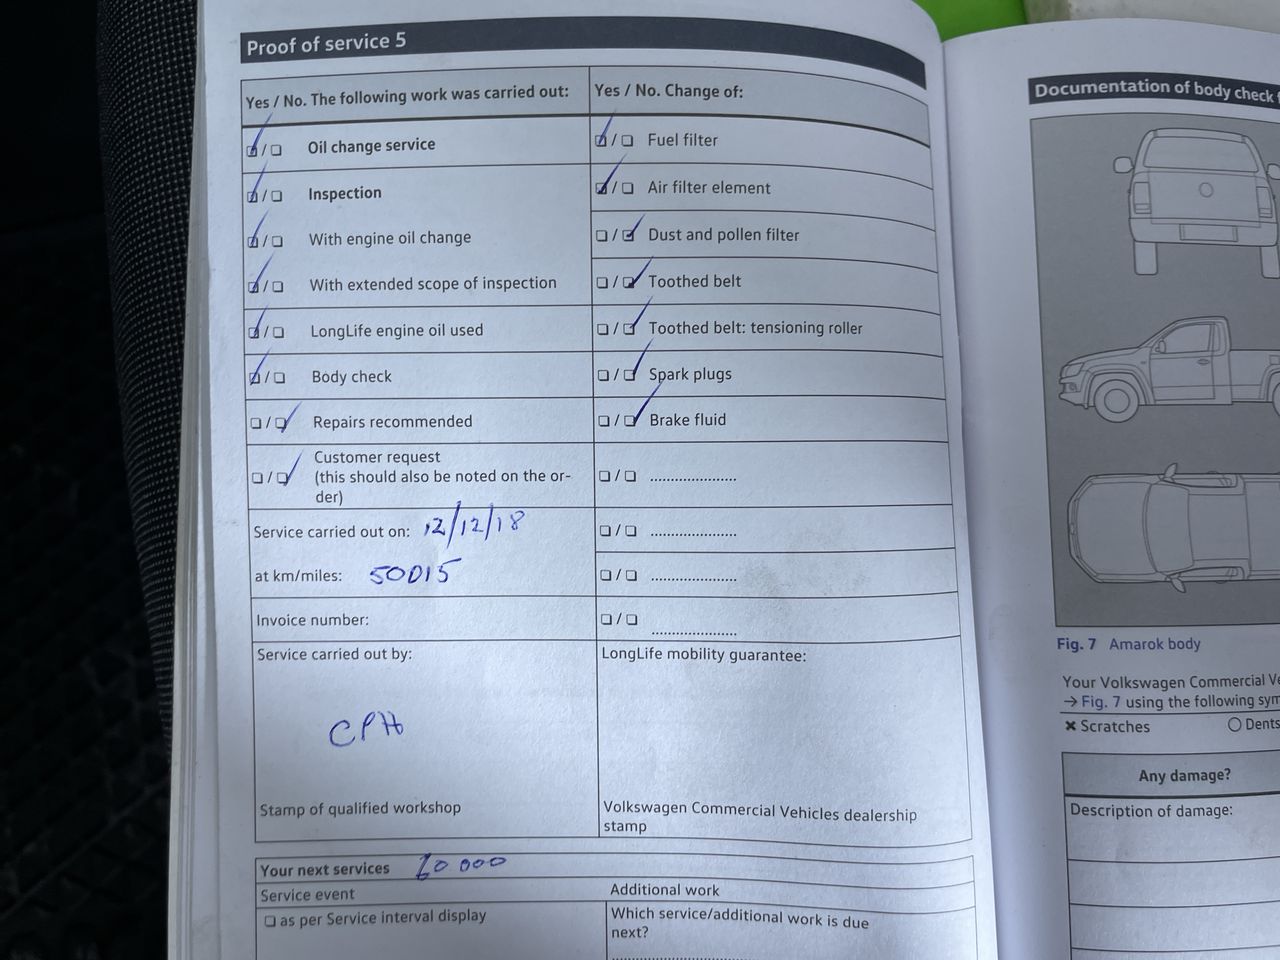 Proof of service 5
Yes / No. The following work was carried out:
Oil change service
Inspection
With engine oil change
With extended scope of inspection
LongLife engine oil used
Body check
Repairs recommended
Customer request
(this should also be noted on the or-
der)
Service carried out on: 12/12/18
at km/miles: 50015
Invoice number:
Service carried out by:
CPH
Stamp of qualified workshop
Yes / No. Change of:
Fuel filter
Air filter element
Dust and pollen filter
Toothed belt
Toothed belt: tensioning roller
Spark plugs
Brake fluid
LongLife mobility guarantee:
Volkswagen Commercial Vehicles dealership
stamp
Your next services 60 000
Service event
☐ as per Service interval display
Additional work
Which service/additional work is due
next?
Documentation of body check
Fig. 7 Amarok body
Your Volkswagen Commercial
→ Fig. 7 using the following
✖ Scratches
○ Dents
Any damage?
Description of damage: